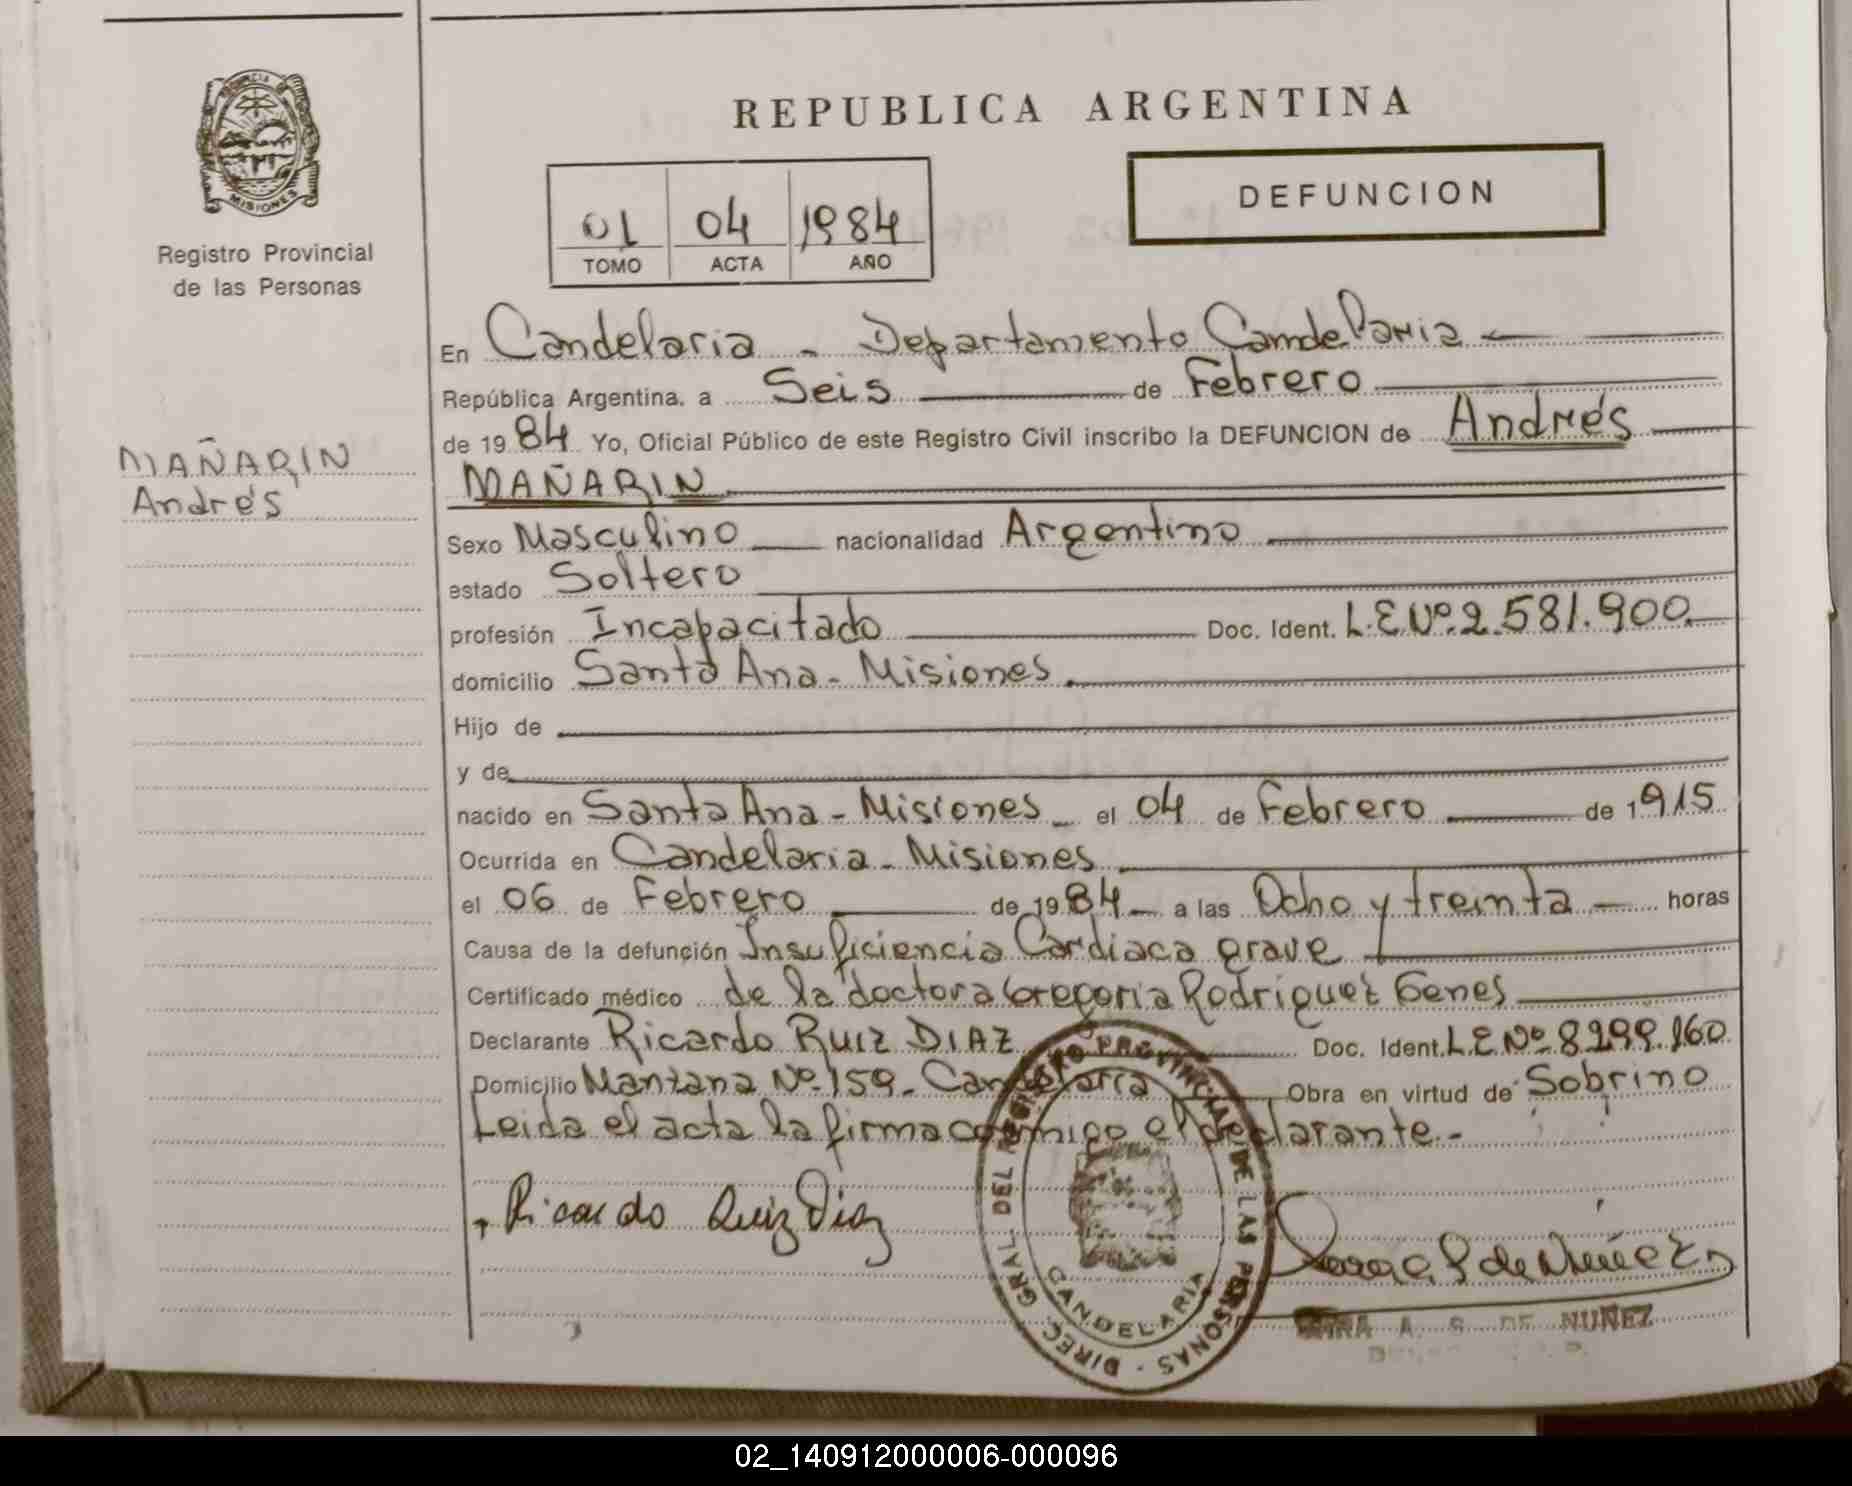 REPUBLICA ARGENTINA
PROVINCIA DE
MISIONES
Registro Provincial
de las Personas
01 04 1984
TOMO ACTA AÑO
DEFUNCION
MAÑARIN
Andrés
En Candelaria - Departamento Candelaria
República Argentina, a Seis de Febrero
de 1984 Yo, Oficial Público de este Registro Civil inscribo la DEFUNCION de Andrés
MAÑARIN
Sexo Masculino nacionalidad Argentino
estado Soltero
profesión Incapacitado Doc. Ident. L.E Nº.2.581.900
domicilio Santa Ana - Misiones
Hijo de
y de
nacido en Santa Ana - Misiones el 04 de Febrero de 1915
Ocurrida en Candelaria - Misiones
el 06 de Febrero de 1984 a las Ocho y treinta horas
Causa de la defunción Insuficiencia Cardiaca grave
Certificado médico de la doctora Gregoria Rodriguez Genes
Declarante Ricardo RUIZ DIAZ Doc. Ident. L.E Nº 8299.160
Domicilio Manzana Nº 159 - Candelaria Obra en virtud de Sobrino
Leida el acta la firma conmigo el declarante.-
Ricardo Ruiz Diaz
DIREC. GRAL. DEL REGISTRO PROVINCIAL DE LAS PERSONAS
CANDELARIA
de Núñez
A. S. DE NUÑEZ
02_140912000006-000096